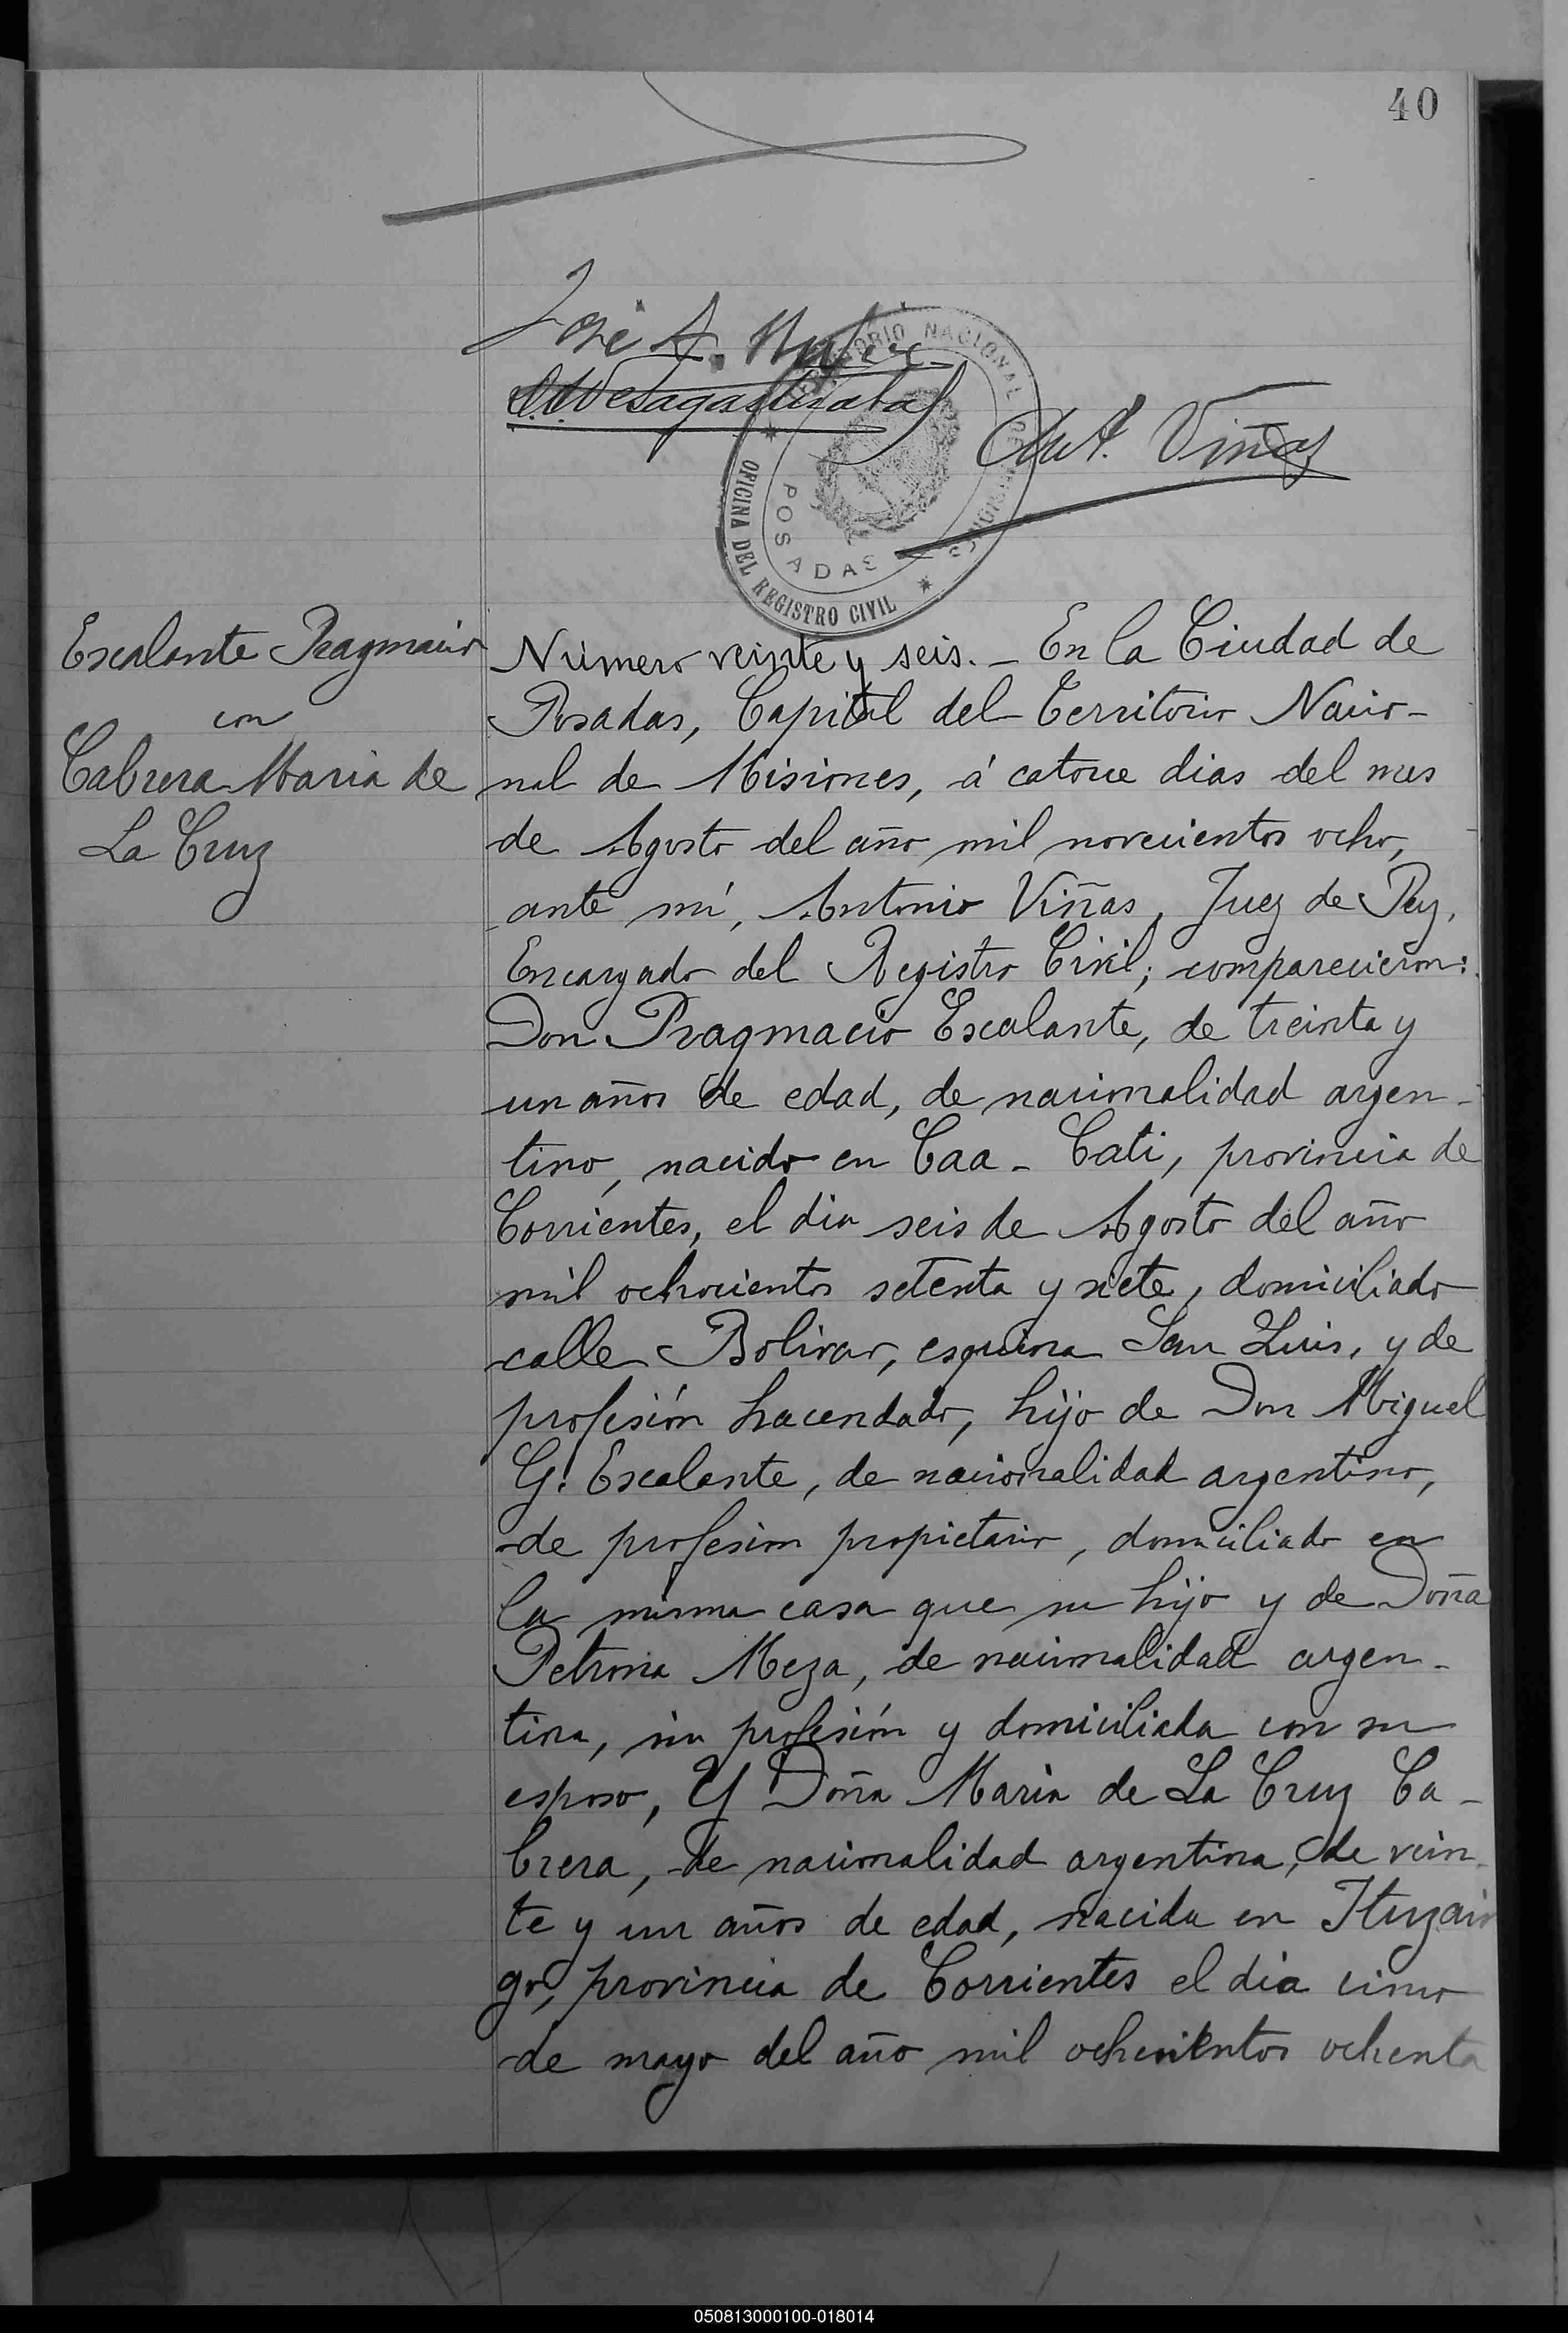 40
José A.
TERRITORIO NACIONAL DE MISIONES
OFICINA DEL REGISTRO CIVIL
POSADAS
Ant. Viñas
Escalante Pragmacio
con
Cabrera Maria de
La Cruz
Número veinte y seis. _ En la Ciudad de
Posadas, Capital del Territorio Nacio-
nal de Misiones, á catorce dias del mes
de Agosto del año mil novecientos ocho,
ante mí, Antonio Viñas, Juez de Paz,
Encargado del Registro Civil; comparecieron:
Don Pragmacio Escalante, de treinta y
un años de edad, de nacionalidad argen-
tino, nacido en Caa-Cati, provincia de
Corrientes, el dia seis de Agosto del año
mil ochocientos setenta y siete, domiciliado
calle Bolivar, esquina San Luis, y de
profesión hacendado, hijo de Don Miguel
G. Escalante, de nacionalidad argentino,
de profesion propietario, domiciliado en
la misma casa que su hijo y de Doña
Petrona Meza, de nacionalidad argen-
tina, sin profesión y domiciliada con su
esposo, Y Doña Maria de La Cruz Ca-
brera, de nacionalidad argentina, de vein-
te y un años de edad, nacida en Ituzain
gó, provincia de Corrientes el dia cinco
de mayo del año mil ochocientos ochenta
050813000100-018014